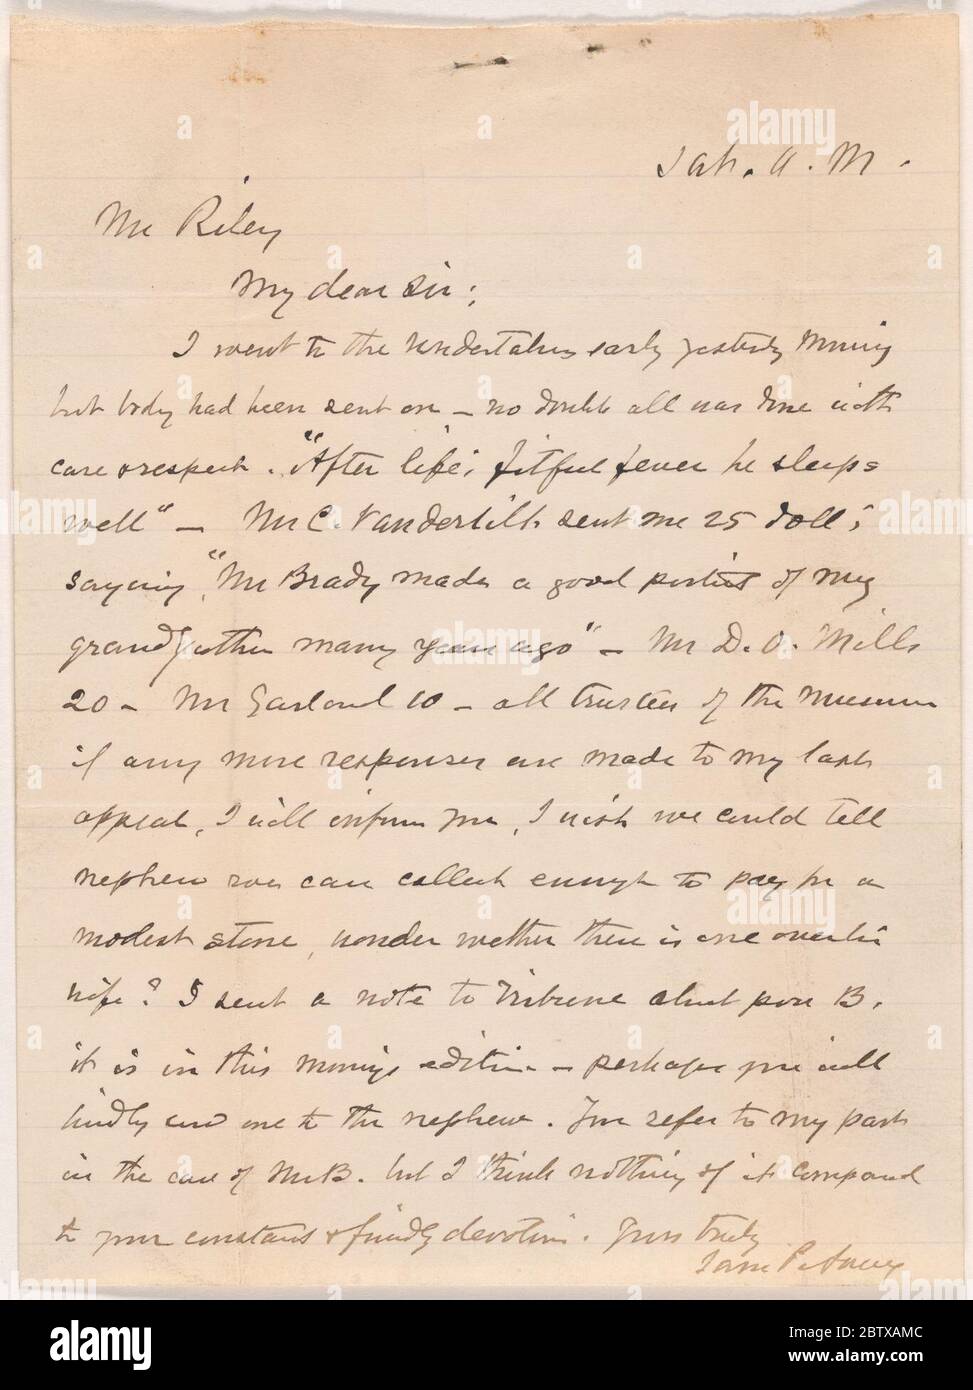 Sat. A.M.
Mr Riley
My dear Sir;
I went to the Undertakers early yesterday morning
but body had been sent on – no doubt all was done with
care & respect. "After life's fitful fever he sleeps
well" – Mr C. Vanderbilt sent me 25 doll's
saying, "Mr Brady made a good portrait of my
grandfather many years ago" – Mr D. O. Mills
20 – Mr Garland 10 – all trustees of the Museum
if any more responses are made to my last
appeal, I will inform you, I wish we could tell
nephew we can collect enough to pay for a
modest stone, wonder whether there is one over his
wife? I sent a note to Tribune about poor B.
it is in this mornings edition – perhaps you will
kindly send one to the nephew. You refer to my part
in the care of Mr B. but I think nothing of it compared
to your constant & friendly devotion. Yours truly
Sam P. Avery
alamy
Image ID: 2BTXAMC
www.alamy.com